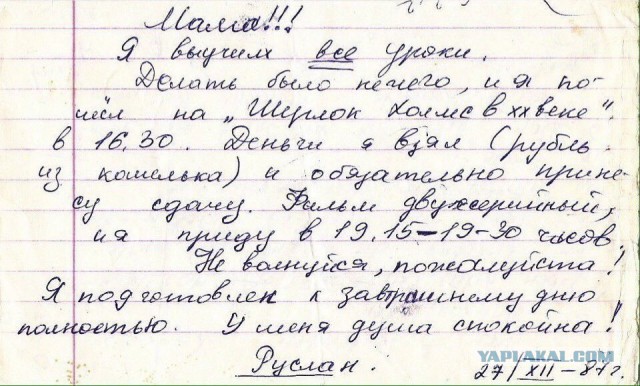 Мама!!!
Я выучил все уроки.
Делать было нечего, и я по-
шёл на „Шерлок Холмс в XX веке".
в 16.30. Деньги я взял (рубль -
из кошелька) и обязательно прине-
су сдачу. Фильм двухсерийный,
и я приду в 19.15-19-30 часов.
Не волнуйся, пожалуйста!
Я подготовлен к завтрашнему дню
полностью. У меня душа спокойна!
Руслан.
27/XII-87г.
YAPLAKAL.COM